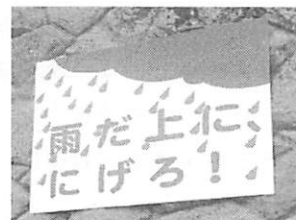 雨だ上に、
にげろ！